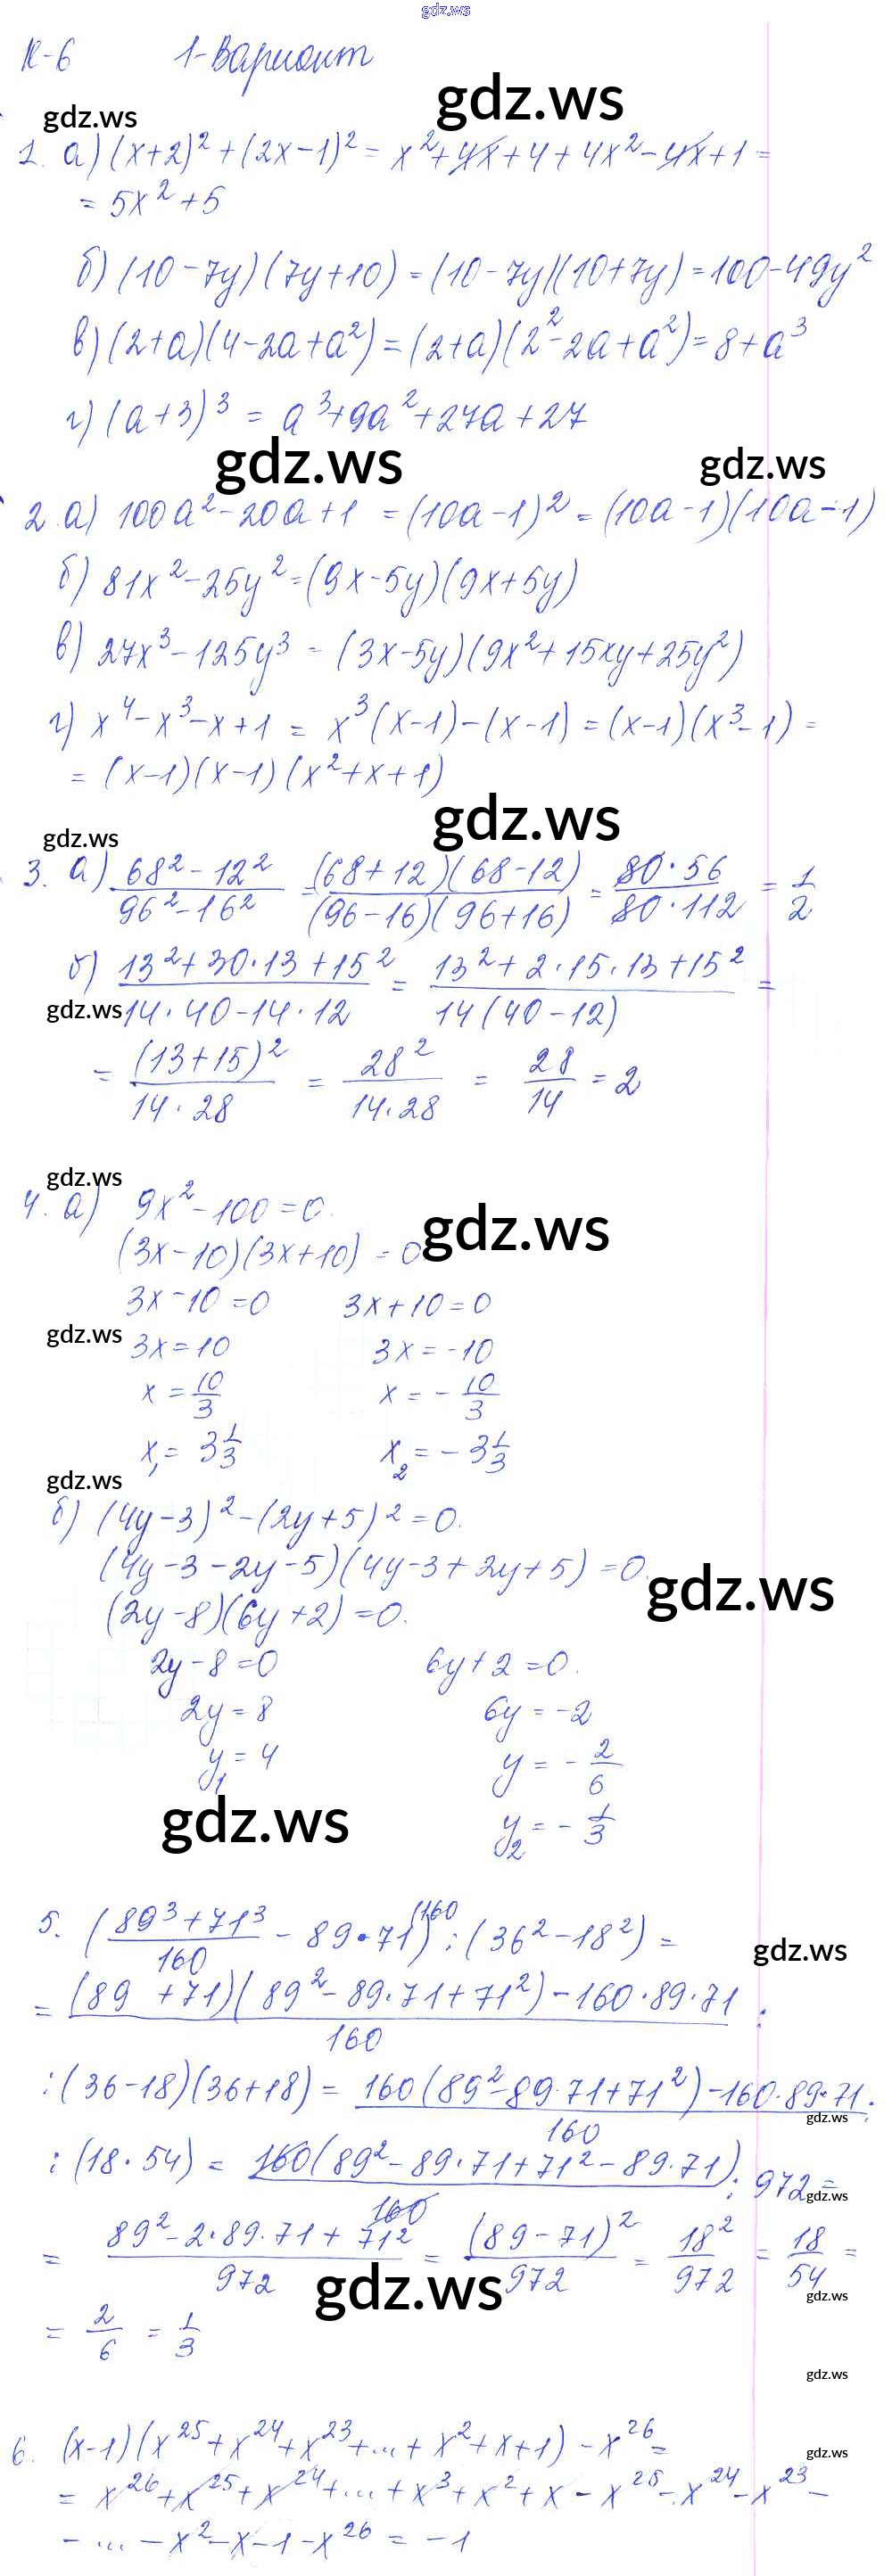 gdz.ws
К-6 1-Вариант
gdz.ws gdz.ws
1. а) (x+2)² + (2x-1)² = x² + 4x + 4 + 4x² - 4x + 1 =
= 5x² + 5
б) (10 - 7y)(7y+10) = (10-7y)(10+7y) = 100-49y²
в) (2+a)(4-2a+a²) = (2+a)(2²-2a+a²) = 8+a³
г) (a+3)³ = a³+9a²+27a+27
gdz.ws gdz.ws
2. а) 100a² - 20a + 1 = (10a-1)² = (10a-1)(10a-1)
б) 81x² - 25y² = (9x-5y)(9x+5y)
в) 27x³ - 125y³ = (3x-5y)(9x²+15xy+25y²)
г) x⁴ - x³ - x + 1 = x³(x-1) - (x-1) = (x-1)(x³-1) =
= (x-1)(x-1)(x²+x+1)
gdz.ws gdz.ws
3. а) (68² - 12²)/(96² - 16²) = ((68+12)(68-12))/((96-16)(96+16)) = (80·56)/(80·112) = 1/2
б) (13²+30·13+15²)/(14·40-14·12) = (13²+2·15·13+15²)/(14(40-12)) =
gdz.ws
= (13+15)²/(14·28) = 28²/(14·28) = 28/14 = 2
gdz.ws
4. а) 9x² - 100 = 0.
gdz.ws
(3x-10)(3x+10) = 0
3x-10=0 3x+10=0
gdz.ws
3x=10 3x=-10
x = 10/3 x = - 10/3
x₁ = 3 1/3 x₂ = - 3 1/3
gdz.ws
б) (4y-3)² - (2y+5)² = 0.
(4y-3-2y-5)(4y-3+2y+5) = 0.
gdz.ws
(2y-8)(6y+2) = 0.
2y-8=0 6y+2=0.
2y=8 6y=-2
y₁=4 y = - 2/6
gdz.ws
y₂ = - 1/3
5. ((89³+71³)/160 - 89·71)^(160 : (36²-18²) =
gdz.ws
= ((89 +71)(89²-89·71+71²) - 160·89·71)/160 :
: (36-18)(36+18) = (160(89²-89·71+71²)-160·89·71)/160 :
gdz.ws
: (18·54) = (160(89²-89·71+71²-89·71))/160 : 972 =
gdz.ws
= (89²-2·89·71+71²)/972 = (89-71)²/972 = 18²/972 = 18/54 =
gdz.ws gdz.ws
= 2/6 = 1/3
gdz.ws
6. (x-1)(x²⁵+x²⁴+x²³+...+x²+x+1) - x²⁶ =
gdz.ws
= x²⁶+x²⁵+x²⁴+...+x³+x²+x - x²⁵ - x²⁴ - x²³ -
- ... - x² - x - 1 - x²⁶ = -1